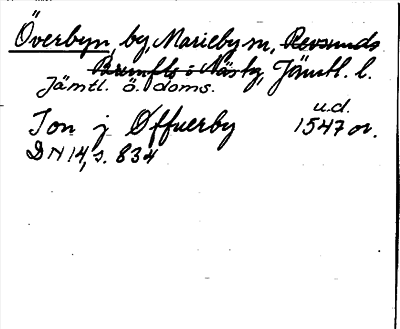 Överbyn, by, Marieby sn, Revsunds
Brunflo o Näsby, Jämtl. l.
Jämtl. ö. doms.
u.d.
Jon j Øffuerby 1547 or.
DN 14, s. 834